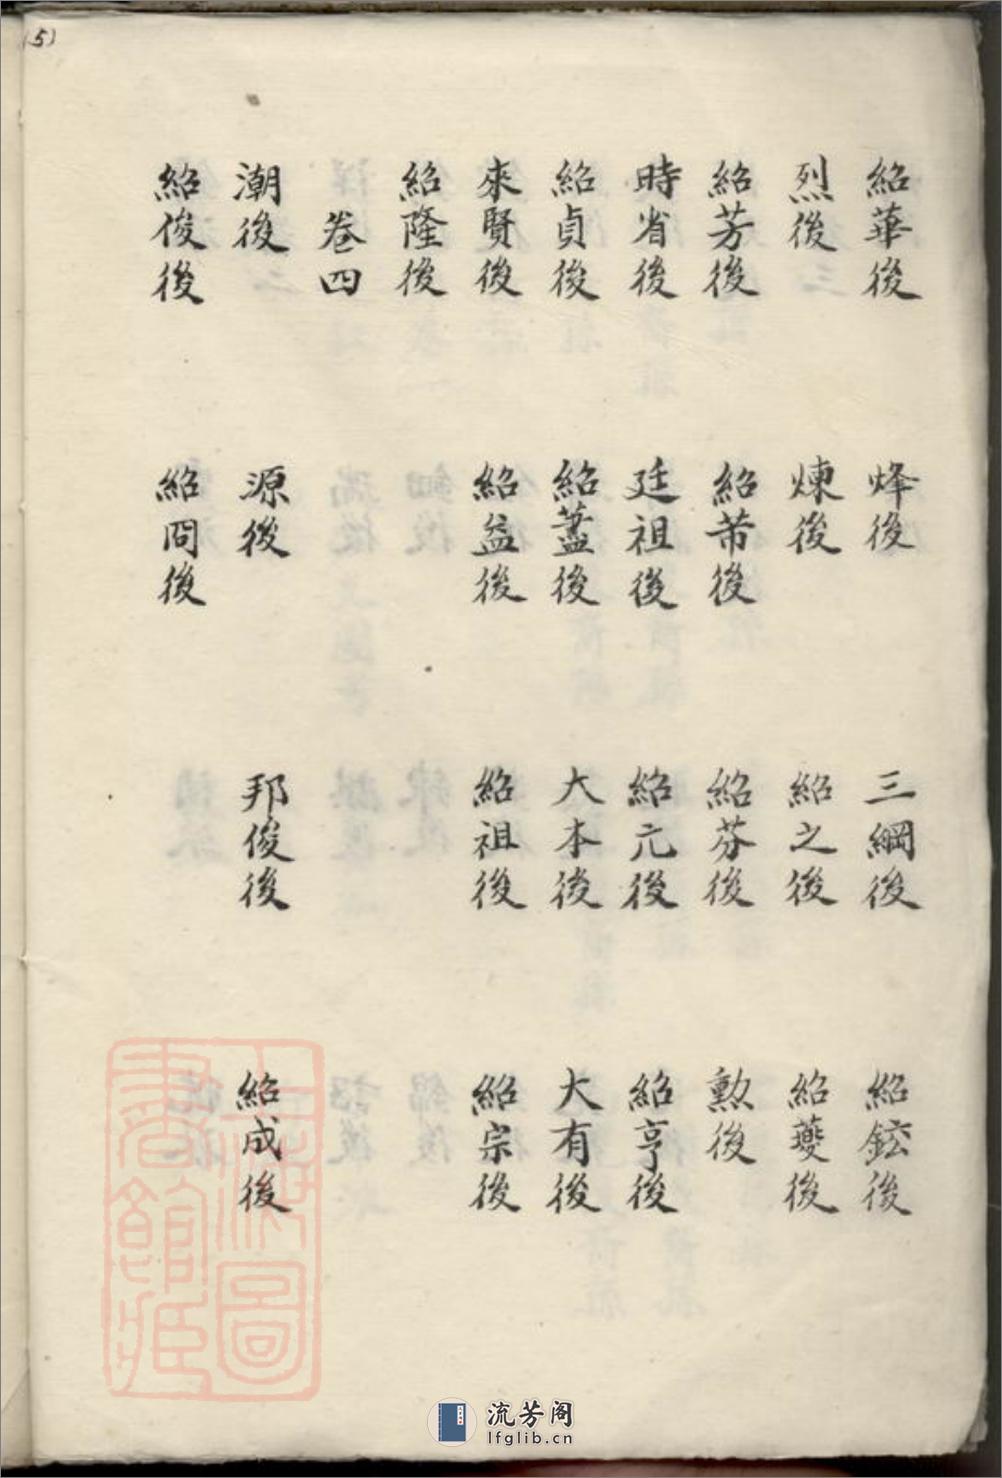 (5)
紹華後 烽後 三綱後 紹鋐後
烈後 煉後 紹之後 紹夔後
紹芳後 紹芾後 紹芬後 勲後
時省後 廷祖後 紹元後 紹亨後
紹貞後 紹藎後 大本後 大有後
來賢後 紹益後 紹祖後 紹宗後
紹隆後
卷四
潮後 源後 邦俊後 紹成後
紹俊後 紹問後
上海圖書館藏
流芳阁
lfglib.cn